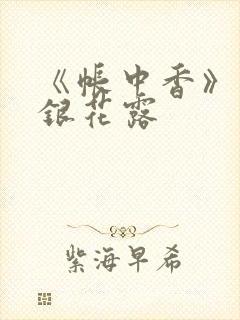 《帐中香》
银花露
紫海早希